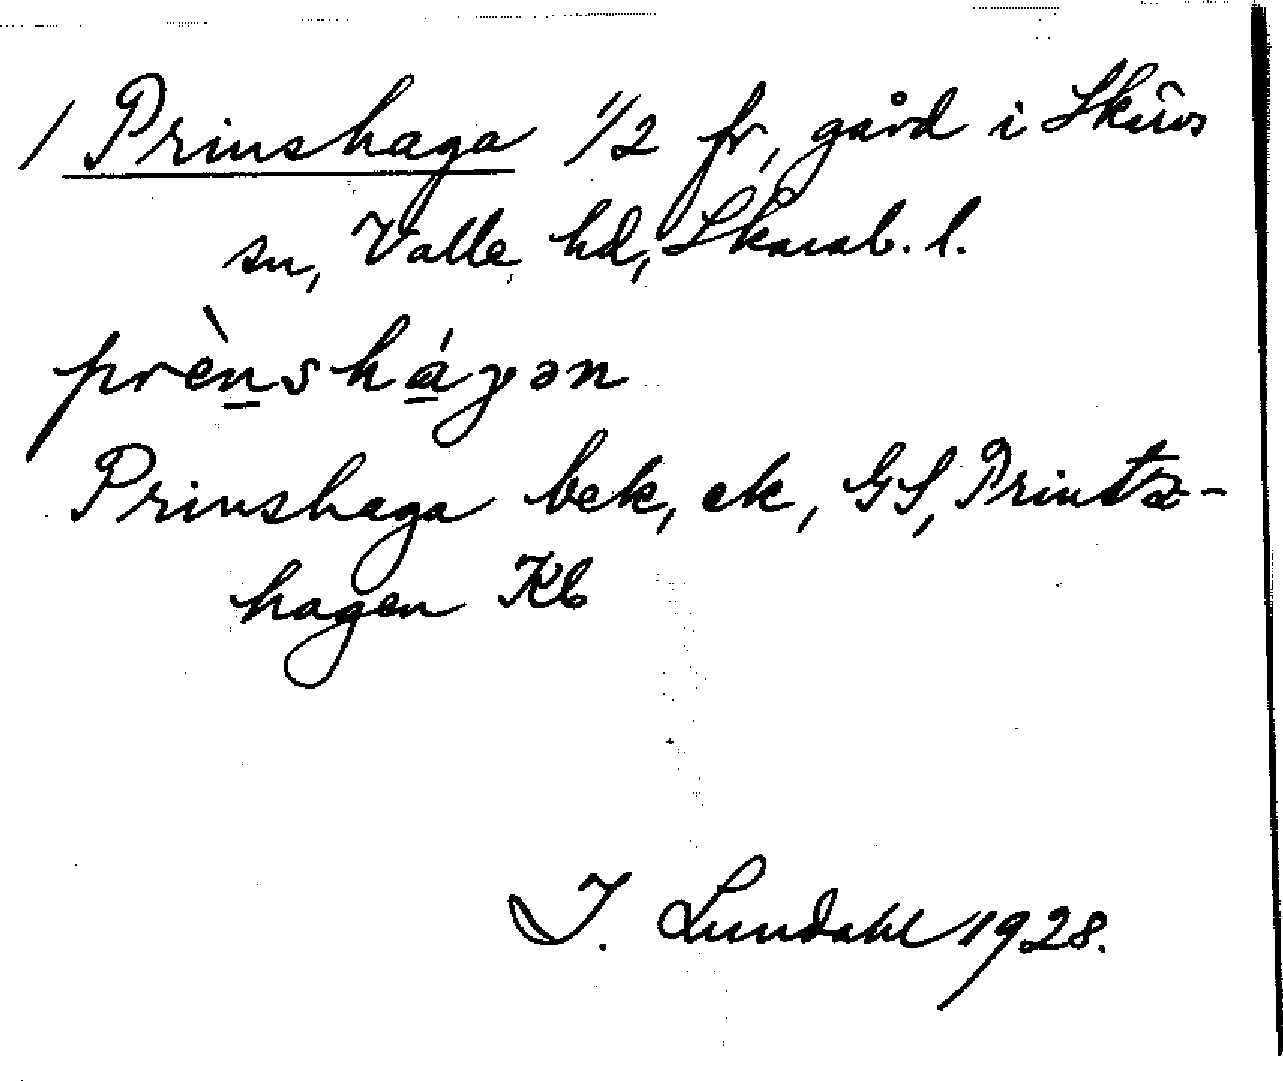 1 Prinshaga 1/2 fr, gård i Skärvs
sn, Valle hd, Skarab. l.
prènsháɣən
Prinshaga bek, ek, GS, Printz-
hagen Kb
I. Lundahl 1928.